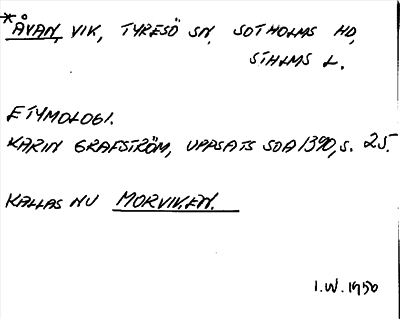 *ÅVAN, VIK, TYRESÖ SN, SOTHOLMS HD,
STHLMS L.
ETYMOLOGI.
KARIN GRAFSTRÖM, UPPSATS SOA 1390, S. 25.
KALLAS NU MORVIKEN.
I.W. 1950